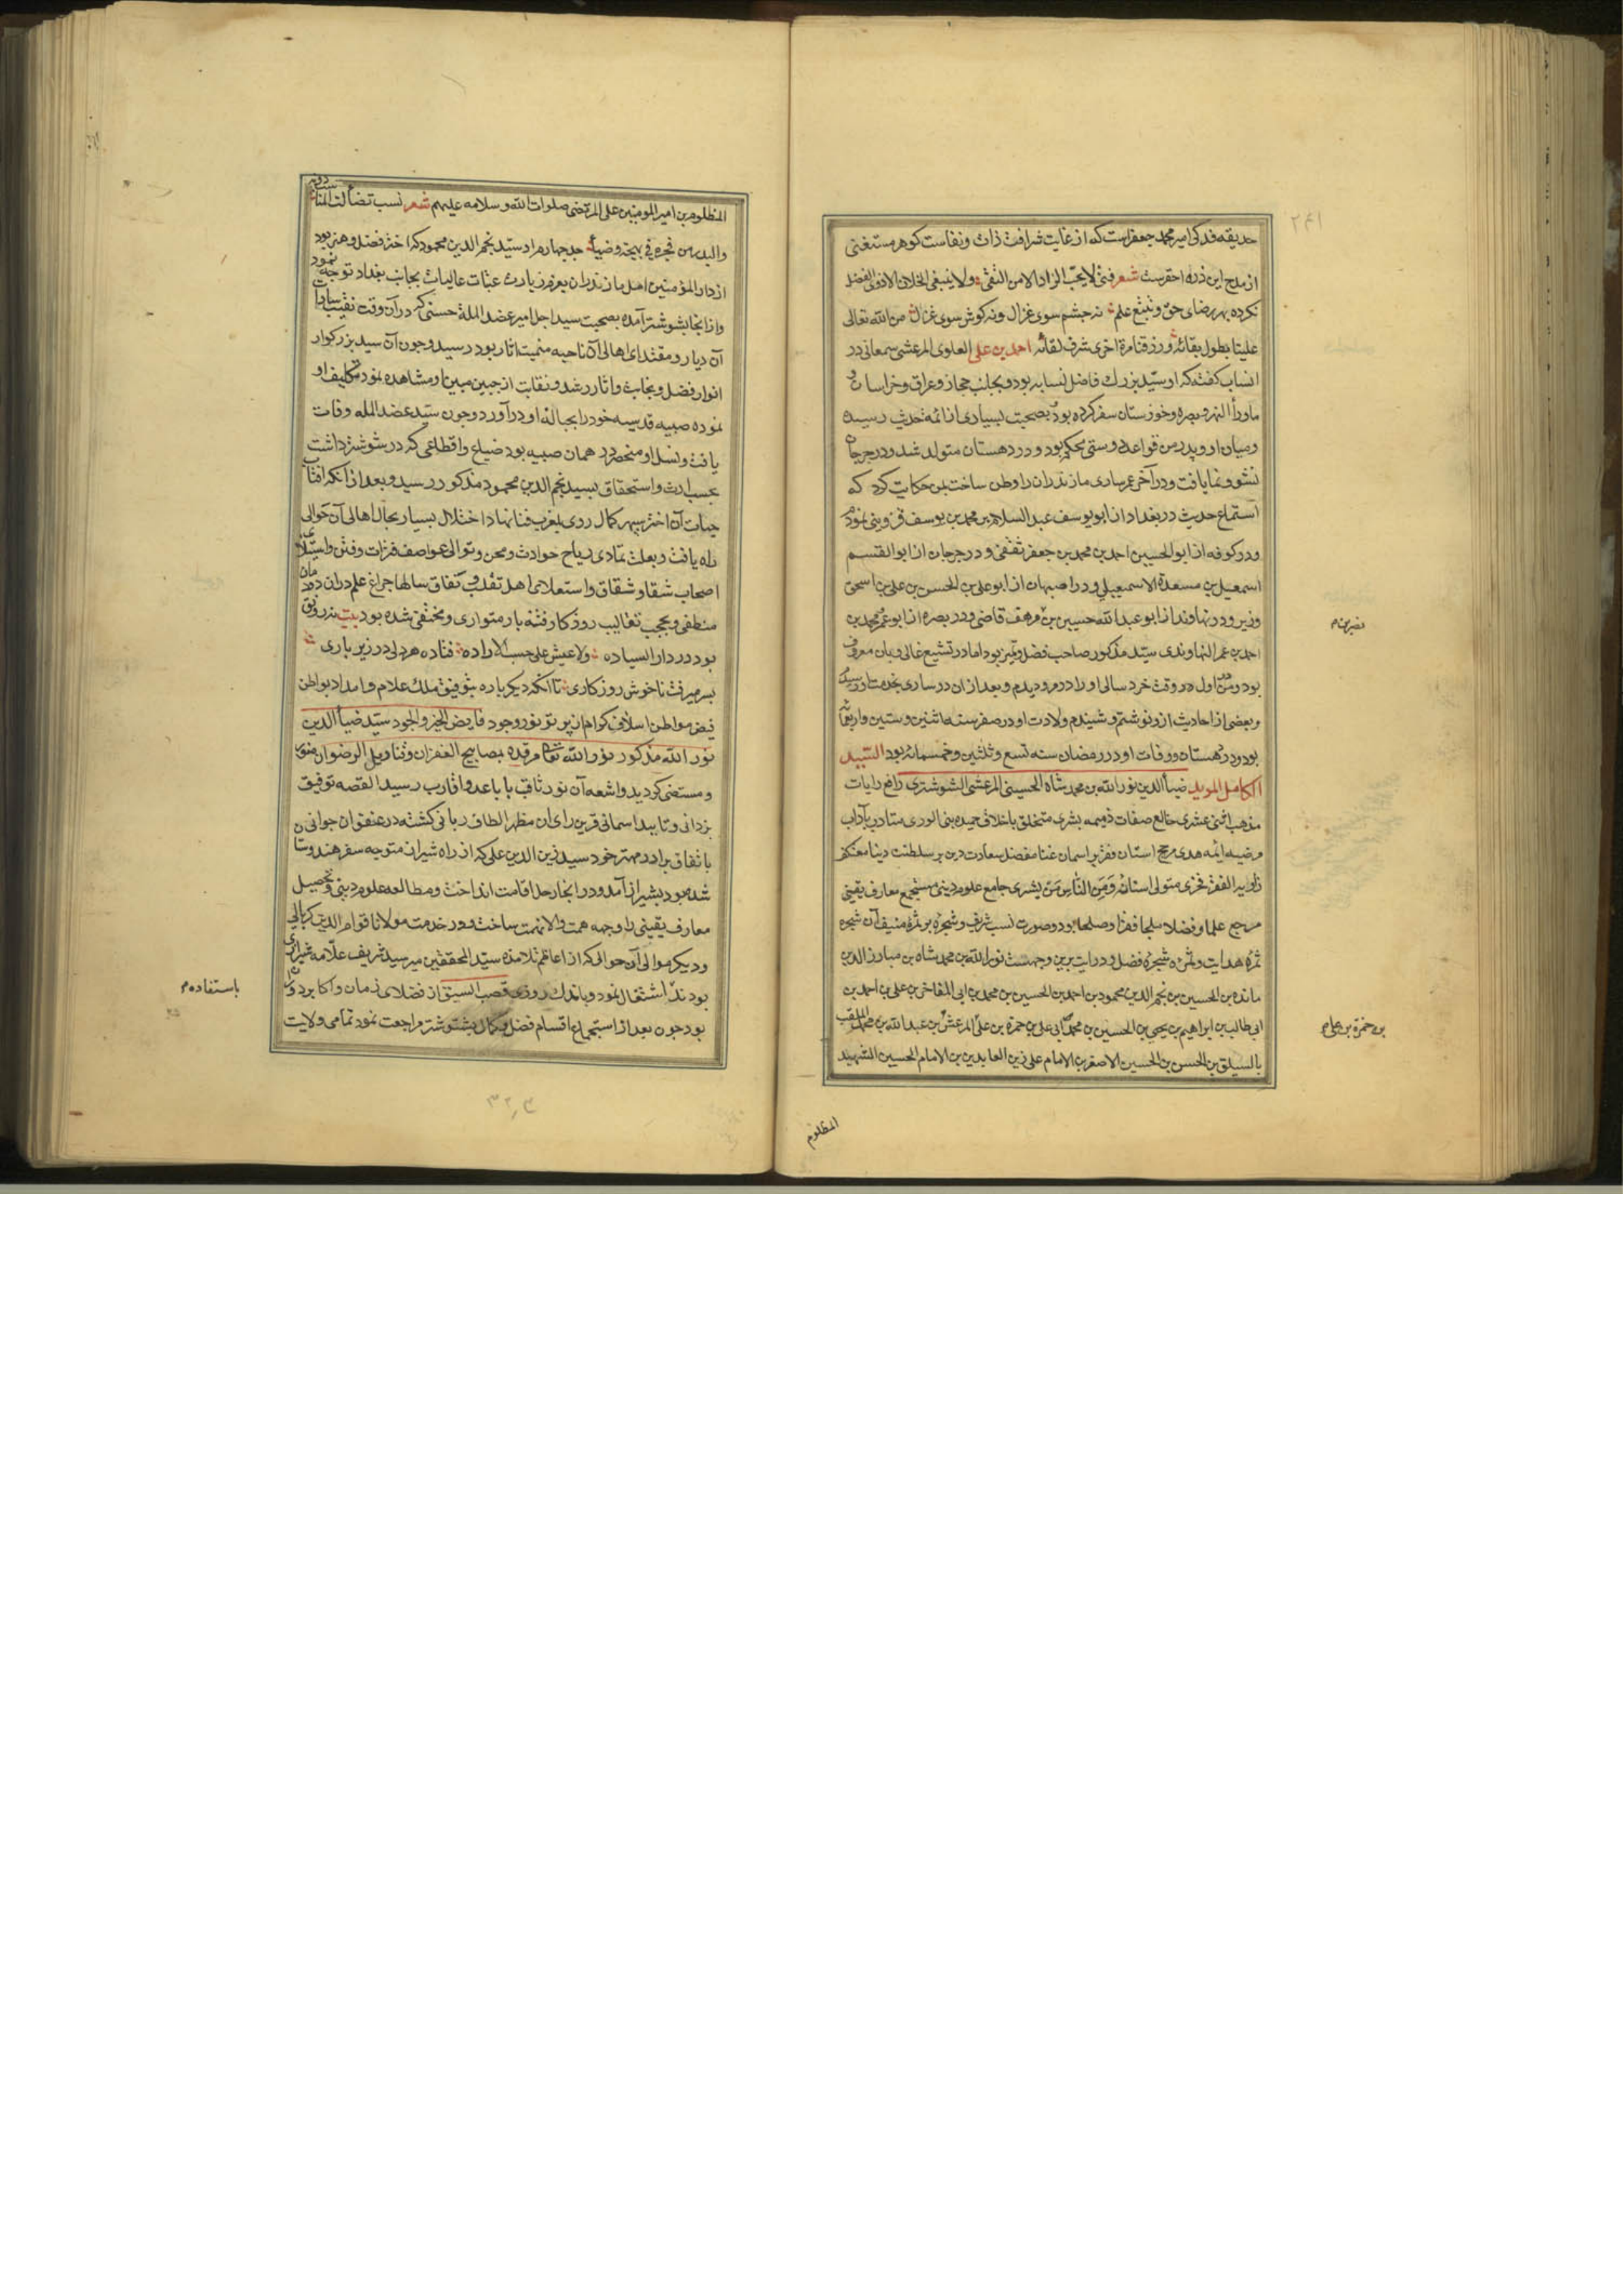 ۲۴۱
حدیقه فدک امیر محمد جعفر است که از غایت شرافت ذات و نفاست کوهر مستغنی
از مدح این ذره احقرست شعر فتی لایحب الزاد الا من التقی ولا یبتغی الخلان الا ذوی الفضل
نکرده بهر رضای حق و تتبع علم نه چشم سوی غزال و نه کوش سوی غزال من الله تعالی
علینا بطول بقائه ورزقنا مرة اخری شرف لقائه احمد بن علی العلوی المرعشی سمعانی در
انساب کفته که او سید بزرک فاضل نسابه بود و بجانب حجاز و عراق و خراسان و
ماوراء النهر و بصره و خوزستان سفر کرده بود و بصحبت بسیاری از ائمه حدیث رسیده
ومیان او و پدر من قواعد دوستی محکم بود و در دهستان متولد شد و در جرجان
نشو و نما یافت و در آخر عمر ساری مازندران را وطن ساخت بمن حکایت کرد که
استماع حدیث در بغداد از ابو یوسف عبد السلام بن محمد بن یوسف قزوینی نمودم
و در کوفه از ابو الحسین احمد بن محمد بن جعفر ثقفی و در جرجان از ابو القسم
اسمعیل بن مسعدة الاسمعیلی و در اصبهان از ابو علی بن الحسن بن علی بن اسحق
وزیر و در نهاوند از ابو عبد الله حسین بن مرهف قاضی و در بصره از ابو عمر محمد بن
نصر بن م
احمد بن عمر النهاوندی سید مذکور صاحب فضل و تمیز بود اما در تشیع غالی و بان معروف
بود و من اول در وقت خرد سالی او را در مرو دیدم و بعد از ان در ساری بخدمت او رسیدم
و بعضی از احادیث ازو نوشتم و شنیدم ولادت او در صفر سنه اثنین وستین واربعمائه
بود و در دهستان و وفات او در رمضان سنه تسع وثلثین وخمسمائه بود السید
الکامل الموید ضیاء الدین نور الله بن محمد شاه الحسینی المرعشی الشوشتری رافع رایات
مذهب اثنی عشری خالع صفات ذمیمه بشری متخلق باخلاق حمیده بنی الوری متادب بآداب
مرضیه ائمه هدی مرجح استان فقر بر اسمان غنا مفضل سعادت دین بر سلطنت دنیا معتکف
زاویه الفقر فخری متولی استانه وَمِنَ النَّاسِ مَنْ یشری جامع علوم دینی مستجمع معارف یقینی
مرجع علما و فضلا ملجا فقرا و صلحا بود و صورت نسب شریف و شجره بر ثمره منیف آن شجره
ثمره هدایت و ثمره شجره فضل و درایت برین وجهست نور الله بن محمد شاه بن مبارز الدین
مانده بن الحسین بن نجم الدین محمود بن احمد بن الحسین بن محمد بن ابی المفاخر بن علی بن احمد بن
ابی طالب بن ابراهیم بن یحیی بن الحسین بن محمد بن ابی علی بن حمزة بن علی المرعش بن عبد الله بن محمد الملقب
بن حمزة بن علی م
بالسیلق بن الحسن بن الحسین الاصغر بن الامام علی زین العابدین بن الامام الحسین الشهید
المظلوم
المظلوم بن امیر المومنین علی المرتضی صلوات الله و سلامه علیهم شعر نسب تضاءلت المناسب دونه
والبدر من فجره فی بهجة وضیاء جد چهارم او سید نجم الدین محمود که اختر فضل و هنر بود
از دار المؤمنین امل مازندران بعزم زیارت عتبات عالیات بجانب بغداد توجه نمود
واز انجا بشوشتر آمده بصحبت سید اجل امیر عضد الملة حسنی که در آن وقت نقیب سادات
آن دیار و مقتدای اهالی آن ناحیه میمنت اثار بود رسید و چون آن سید بزرکوار
انوار فضل و نجابت و اثار رشد و نقابت از جبین مبین او مشاهده نمود تکلیف او
نموده صبیه قدسیه خود را بحباله او در آورد و چون سید عضد المله وفات
یافت و نسل او منحصر در همان صبیه بود ضیاع و اقطاعی که در شوشتر داشت
بحسب ارث و استحقاق بسید نجم الدین محمود مذکور رسید و بعد از انکه افتاب
حیات آن اختر سپهر کمال روی بغرب فنا نهاد اختلال بسیار بحال اهالی آن حوالی
راه یافت و بعلت تمادی ریاح حوادث و محن و توالی عواصف فترات و فتن و استیلای
اصحاب شقا و شقاق و استعلای اهل تقلب و نفاق سالها چراغ علم دران دودمان
منطفی و بحجب تغالیب روزکار فتنه بار متواری و مختفی شده بود بیت نه رونق
بود در دار السیاده ولا عیش علی حسب الاراده فتاده هر دلی در زیر باری
بسر میرفت ناخوش روزکاری تا انکه دیکر باره بتوفیق ملک علام و امداد بواطن
فیض مواطن اسلاف کرام ان پر تو نور وجود فایض الخیر والجود سید ضیاء الدین
نور الله مذکور نور الله تعالی مرقده بمصابیح الغفران وقنادیل الرضوان منور
و مستضی کردید و اشعه آن نور ثاقب با باعد و اقارب رسید القصه توفیق
یزدانی و تایید اسمانی قرین رای ان مظهر الطاف ربانی کشته در عنفوان جوانی
باتفاق برادر مهتر خود سید زین الدین علی که از راه شیراز متوجه سفر هندوستان
شده بود بشیراز آمد و در انجا رحل اقامت انداخت و مطالعه علوم دینی و تحصیل
معارف یقینی را وجهه همت والانهمت ساخت و در خدمت مولانا قوام الدین کربالی
ودیکر موالی آن حوالی که از اعاظم تلامذه سید المحققین میر سید شریف علامه شیرازی
بودند اشتغال نمود و باندک روزی قصب السبق از فضلای زمان و اکابر دوران
باستفاده م
بود چون بعد از استجماع اقسام فضل و کمال بشوشتر مراجعت نمود تمامی ولایت